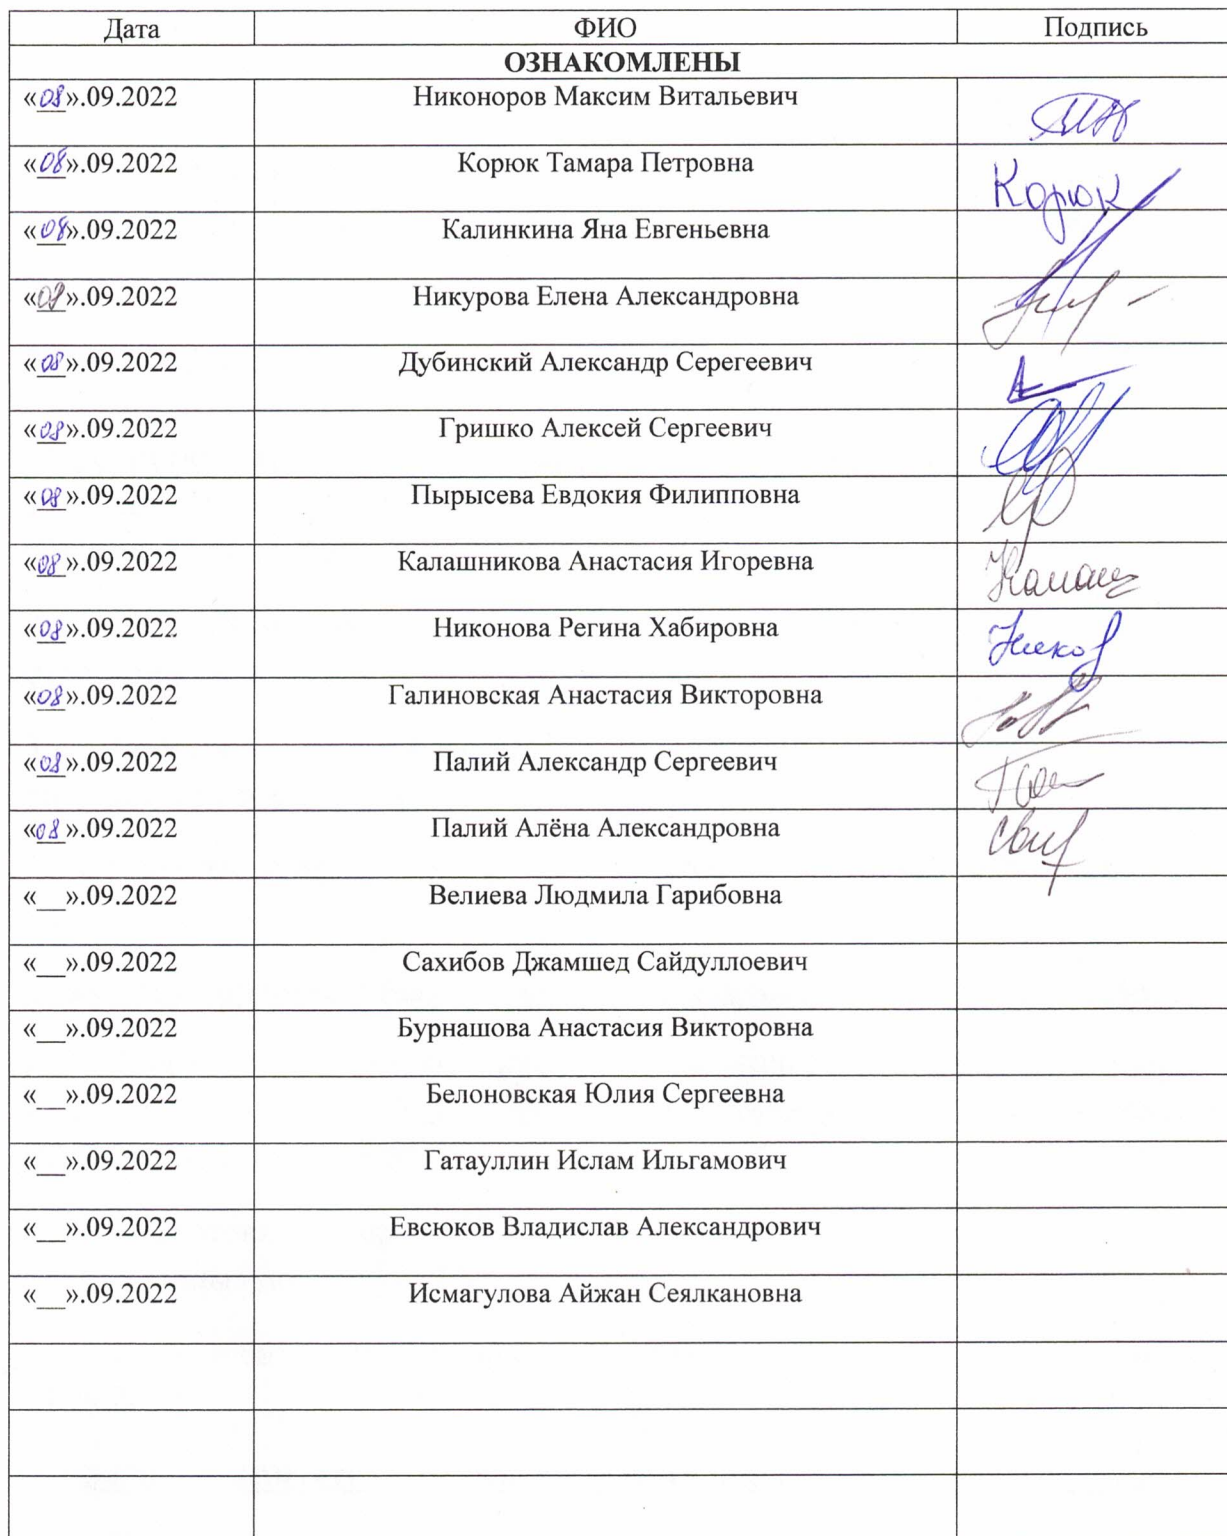 Дата ФИО Подпись
ОЗНАКОМЛЕНЫ
«08».09.2022 Никоноров Максим Витальевич
«08».09.2022 Корюк Тамара Петровна Корюк
«08».09.2022 Калинкина Яна Евгеньевна
«08».09.2022 Никурова Елена Александровна
«08».09.2022 Дубинский Александр Серегеевич
«08».09.2022 Гришко Алексей Сергеевич
«08».09.2022 Пырысева Евдокия Филипповна
«08».09.2022 Калашникова Анастасия Игоревна
«08».09.2022 Никонова Регина Хабировна
«08».09.2022 Галиновская Анастасия Викторовна
«08».09.2022 Палий Александр Сергеевич
«08».09.2022 Палий Алёна Александровна
«__».09.2022 Велиева Людмила Гарибовна
«__».09.2022 Сахибов Джамшед Сайдуллоевич
«__».09.2022 Бурнашова Анастасия Викторовна
«__».09.2022 Белоновская Юлия Сергеевна
«__».09.2022 Гатауллин Ислам Ильгамович
«__».09.2022 Евсюков Владислав Александрович
«__».09.2022 Исмагулова Айжан Сеялкановна